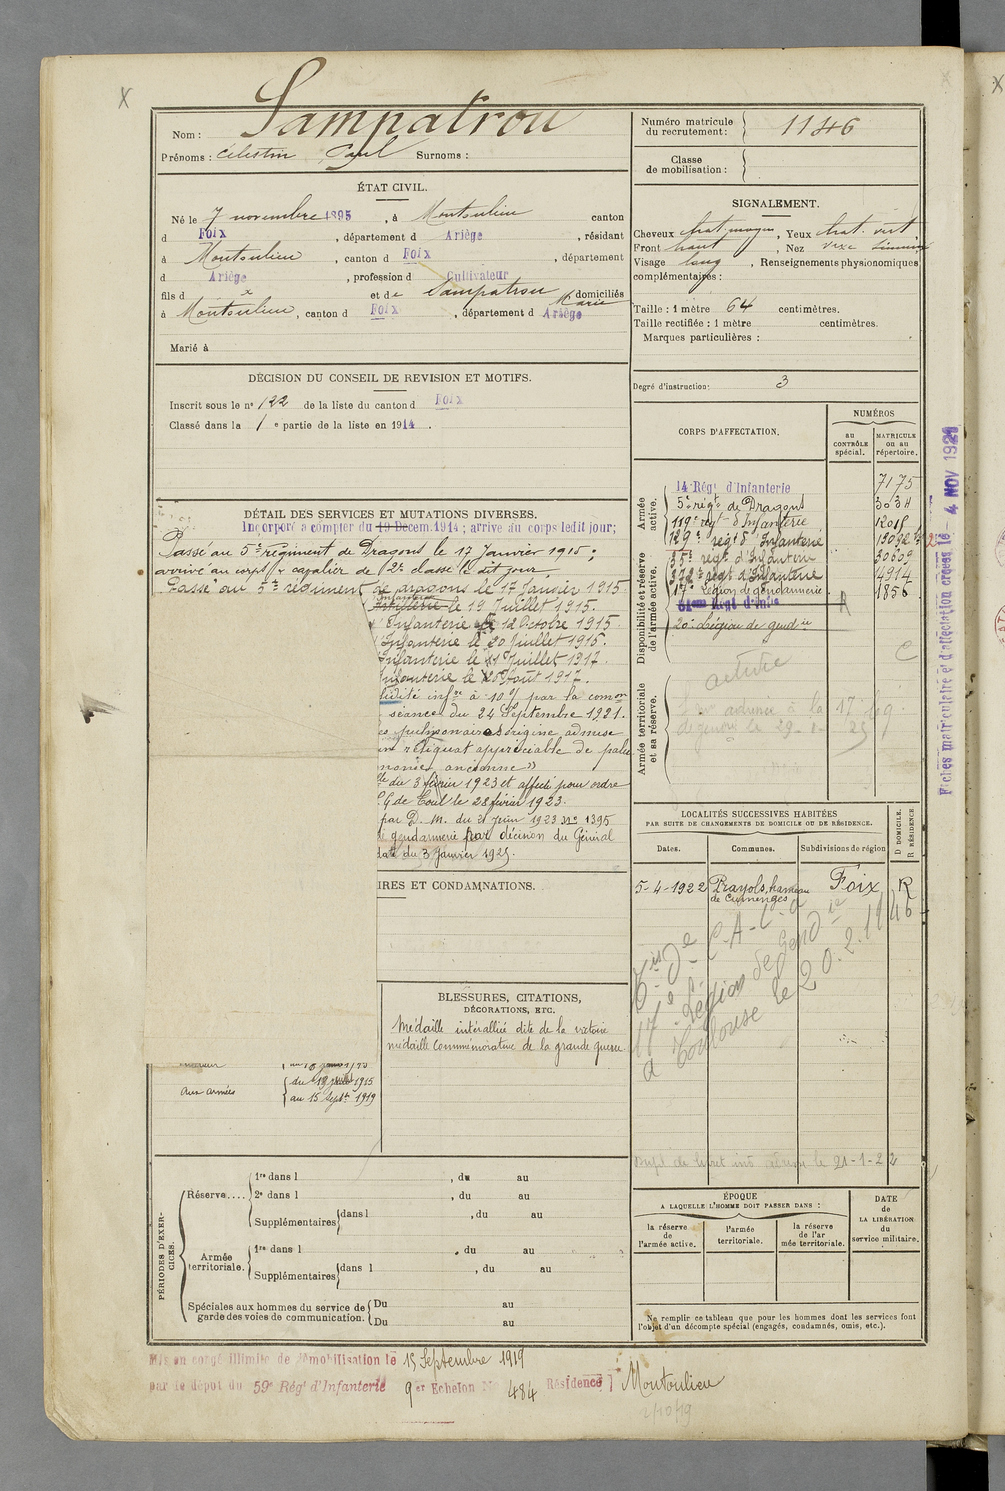 Nom : Sampatrou
Prénoms : Célestin Paul Surnoms :
Numéro matricule du recrutement : 1146
Classe de mobilisation :
ÉTAT CIVIL.
Né le 7 novembre 1895, à Montoulieu canton
d Foix, département d Ariège, résidant
à Montoulieu, canton d Foix, département
d Ariège, profession d Cultivateur
fils d x et de Sampatrou Marie domiciliés
à Montoulieu, canton d Foix, département d Ariège
Marié à
DÉCISION DU CONSEIL DE REVISION ET MOTIFS.
Inscrit sous le n° 122 de la liste du canton d Foix
Classé dans la 1 e partie de la liste en 1914.
DÉTAIL DES SERVICES ET MUTATIONS DIVERSES.
Incorporé à compter du 19 Decem. 1914 ; arrivé au corps ledit jour ;
Passé au 5e régiment de Dragons le 17 Janvier 1915 ;
arrivé au corps & cavalier de 2e classe le dit jour
Passé au 5e régiment de dragons le 17 Janvier 1915
Infanterie
Artillerie le 19 Juillet 1915.
Infanterie le 12 Octobre 1915.
Infanterie le 20 Juillet 1916.
Infanterie le 11 Juillet 1917.
Infanterie le 20 Août 1917.
lidité infre à 10 % par la comon
séance du 24 Septembre 1921.
pulmonaires origine admise
reliquat appréciable de palu
ancienne »
du 3 février 1923 et affecté pour ordre
de Toul le 28 février 1923.
par D. M. du 21 Juin 1923 No 1395
gendarmerie par décision du Général
date du 3 Janvier 1925.
IRES ET CONDAMNATIONS.
BLESSURES, CITATIONS,
DÉCORATIONS, ETC.
Médaille interalliée dite de la victoire
médaille commémorative de la grande guerre
aux armées
du 19 Juillet 1915
au 15 Septre 1919
SIGNALEMENT.
Cheveux chat. moyen, Yeux chat. vert
Front haut, Nez
Visage long, Renseignements physionomiques
complémentaires :
Taille : 1 mètre 64 centimètres.
Taille rectifiée : 1 mètre centimètres.
Marques particulières :
Degré d'instruction : 3
CORPS D'AFFECTATION.
NUMÉROS
au CONTRÔLE spécial.
MATRICULE ou au répertoire.
Armée active.
Disponibilité et réserve de l'armée active.
Armée territoriale et sa réserve.
14 Régt d'Infanterie 7175
5e régt de Dragons 3034
119e régt d'Infanterie
129e régt d'Infanterie
35e régt d'Infanterie 30609
272e régt d'Infanterie 4914
17e Légion de gendarmerie 1856
20e Légion de gendie
LOCALITÉS SUCCESSIVES HABITÉES
PAR SUITE DE CHANGEMENTS DE DOMICILE OU DE RÉSIDENCE.
Dates. Communes. Subdivisions de région
D DOMICILE. R RÉSIDENCE
5-4-1922 Prayols, hameau Foix R
à Toulouse le 20.2.1946
ÉPOQUE
A LAQUELLE L'HOMME DOIT PASSER DANS :
la réserve de l'armée active.
l'armée territoriale.
la réserve de l'armée territoriale.
DATE de LA LIBÉRATION du service militaire.
Ne remplir ce tableau que pour les hommes dont les services font
l'objet d'un décompte spécial (engagés, condamnés, omis, etc.).
PÉRIODES D'EXERCICES.
Réserve....
1re dans l , du au
2e dans l , du au
Supplémentaires dans l , du au
Armée territoriale.
1re dans l , du au
Supplémentaires dans l , du au
Spéciales aux hommes du service de garde des voies de communication.
Du au
Du au
Mis en congé illimité de démobilisation le 15 Septembre 1919
par le dépôt du 59e Régt d'Infanterie 9 er Echelon No 484 Résidence Montoulieu
Fiches matriculaire et d'affectation créées le 4 NOV 1921